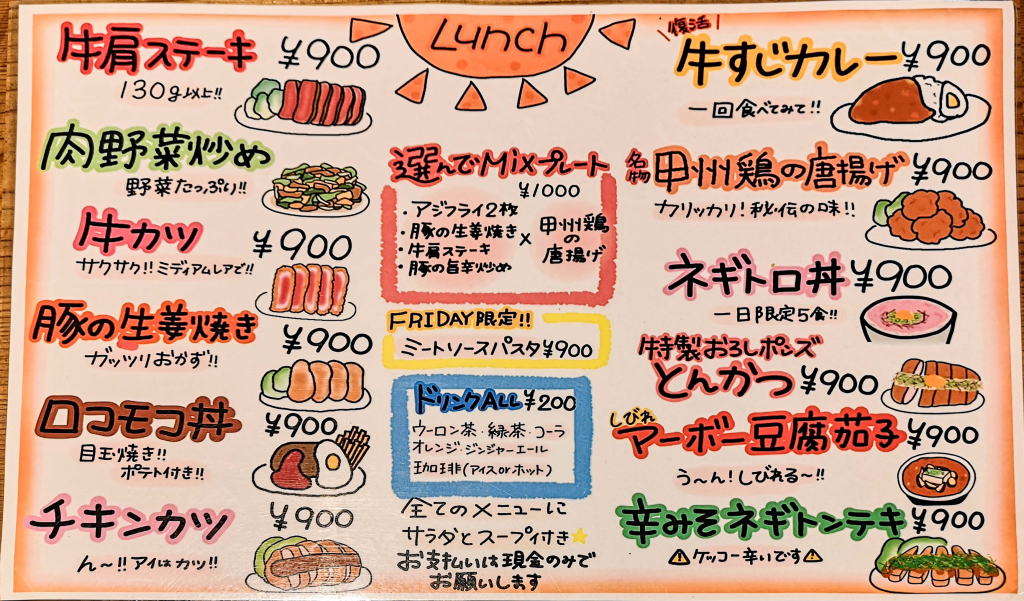 Lunch
牛肩ステーキ ¥900
130g以上!!
肉野菜炒め
野菜たっぷり!!
牛カツ ¥900
サクサク!!ミディアムレアで!!
豚の生姜焼き ¥900
ガッツリおかず!!
ロコモコ丼 ¥900
目玉焼き!!
ポテト付き!!
チキンカツ ¥900
ん〜!!アイはカツ!!
選んでMixプレート
¥1000
・アジフライ2枚
・豚の生姜焼き
・牛肩ステーキ
・豚の旨辛炒め
×
甲州鶏
の
唐揚げ
FRIDAY限定!!
ミートソースパスタ¥900
ドリンクALL ¥200
ウーロン茶・緑茶・コーラ
オレンジ・ジンジャーエール
珈琲(アイスorホット)
全てのメニューに
サラダとスープ付き
お支払いは現金のみで
お願いします
復活!
牛すじカレー ¥900
一回食べてみて!!
名物 甲州鶏の唐揚げ ¥900
カリッカリ!秘伝の味!!
ネギトロ丼 ¥900
一日限定5食!!
特製おろしポンズ
とんかつ ¥900
しびれ
マーボー豆腐茄子 ¥900
う〜ん!しびれる〜!!
辛みそネギトンテキ ¥900
⚠ケッコー辛いです⚠